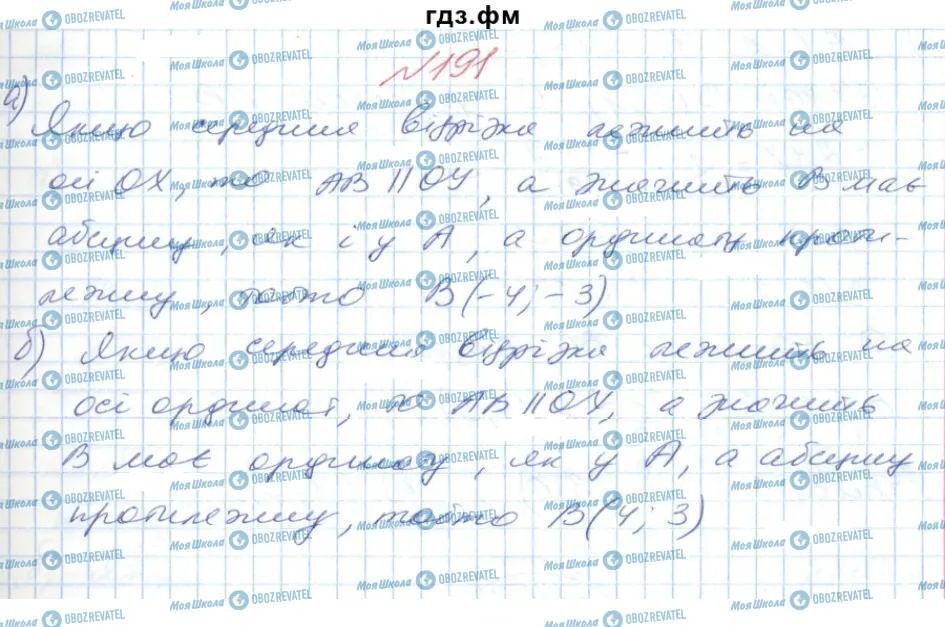 гдз.фм
№191
а)
Якщо середина відрізка лежить на
осі ОХ, то АВ || ОУ, а значить В має
абсцису, як і у А, а ординату проти-
лежну, тобто В(-4; -3)
б) Якщо середина відрізка лежить на
осі ординат, то АВ || ОУ, а значить
В має ординату, як у А, а абсцису
протилежну, тобто В(4; 3)